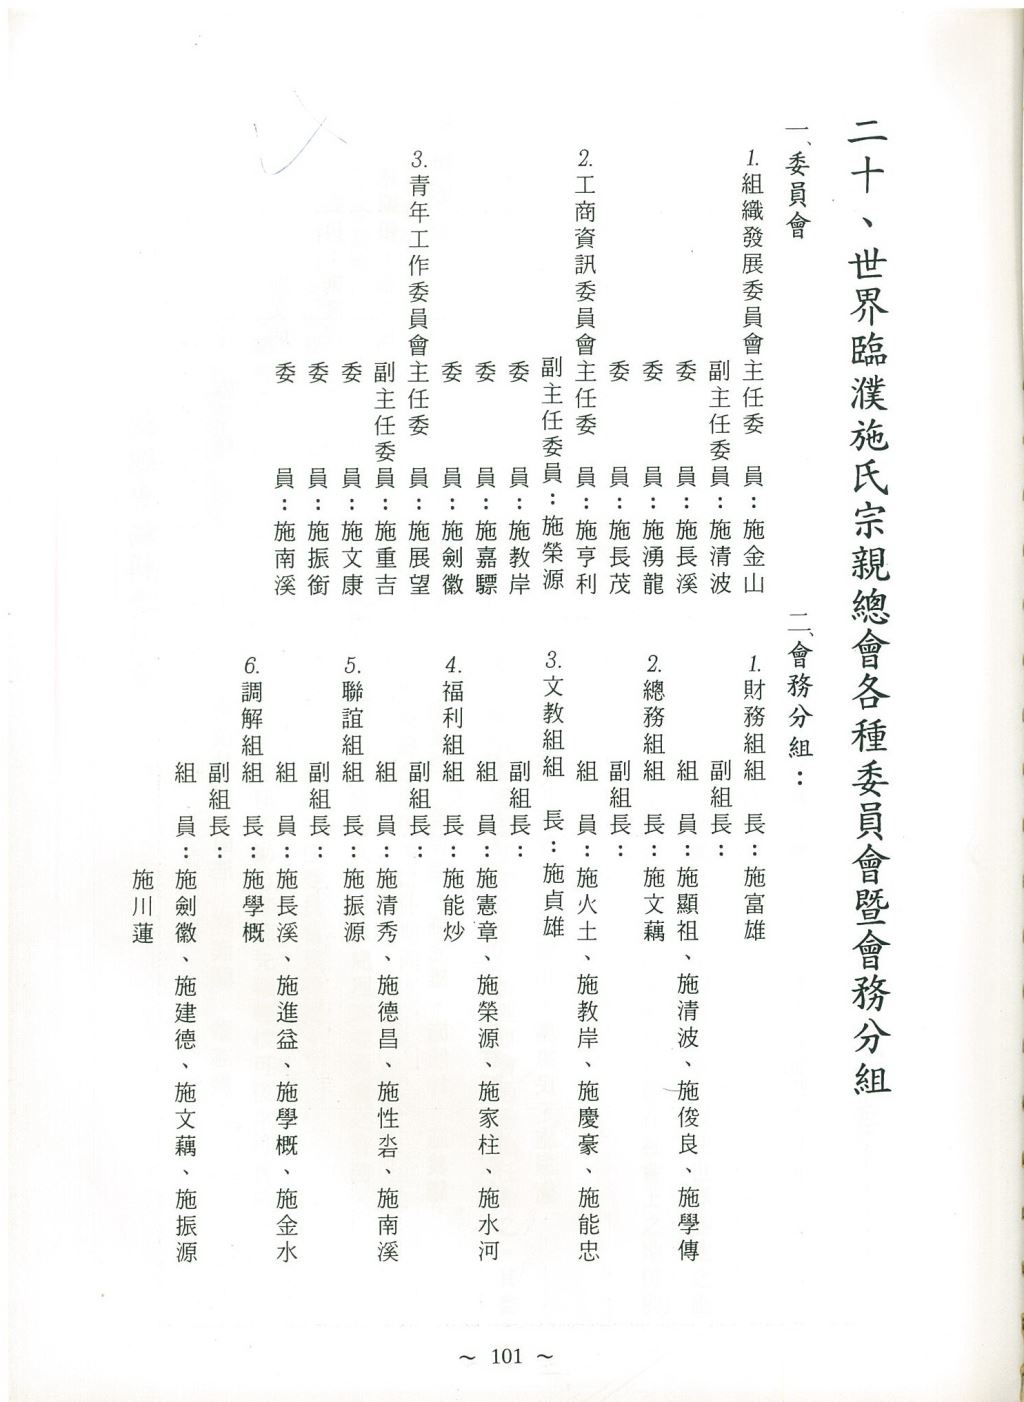 二十、世界臨濮施氏宗親總會各種委員會暨會務分組
一、委員會
1.組織發展委員會主任委員:施金山
副主任委員:施清波
委員:施長溪
委員:施湧龍
委員:施長茂
2.工商資訊委員會主任委員:施亨利
副主任委員:施榮源
委員:施教岸
委員:施嘉驃
委員:施劍徽
3.青年工作委員會主任委員:施展望
副主任委員:施重吉
委員:施文康
委員:施振銜
委員:施南溪
二、會務分組:
1.財務組組長:施富雄
副組長:
組員:施顯祖、施清波、施俊良、施學傳
2.總務組組長:施文藕
副組長:
組員:施火土、施教岸、施慶豪、施能忠
3.文教組組長:施貞雄
副組長:
組員:施憲章、施榮源、施家柱、施水河
4.福利組組長:施能炒
副組長:
組員:施清秀、施德昌、施性砦、施南溪
5.聯誼組組長:施振源
副組長:
組員:施長溪、施進益、施學概、施金水
6.調解組組長:施學概
副組長:
組員:施劍徽、施建德、施文藕、施振源
施川蓮
~ 101 ~